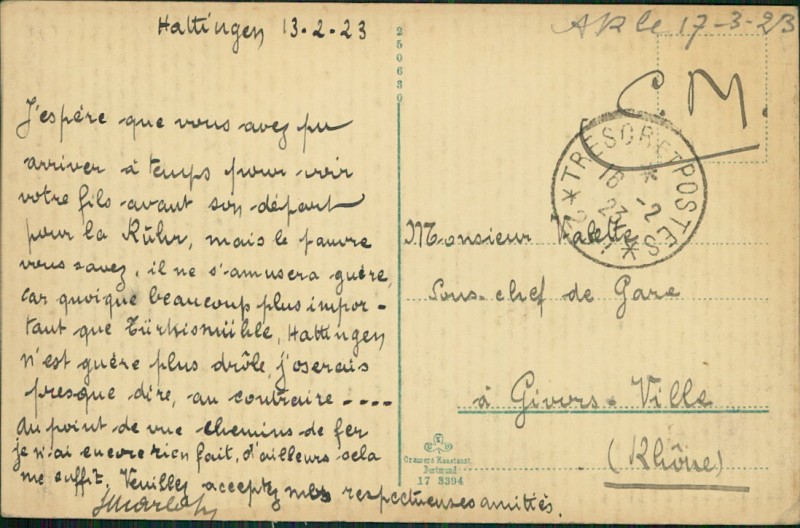 Hattingen 13-2-23
J'espère que vous avez pu
arriver à temps pour voir
votre fils avant son départ
pour la Rühr, mais le pauvre
vous savez, il ne s'amusera guère,
car quoique beaucoup plus impor-
tant que Türkismühle, Hattingen
n'est guère plus drôle, j'oserais
presque dire, au contraire ----
Au point de vue chemins de fer
je n'ai encore rien fait, d'ailleurs cela
me suffit. Veuillez acceptez mes respectueuses amitiés.
250630
17-3-23
C.M.
TRESOR ET POSTES
16 -2
23
Monsieur Valette
Sous-chef de Gare
à Givors-Ville
(Rhône)
Cramers Kunstanst.
Dortmund
17 3394